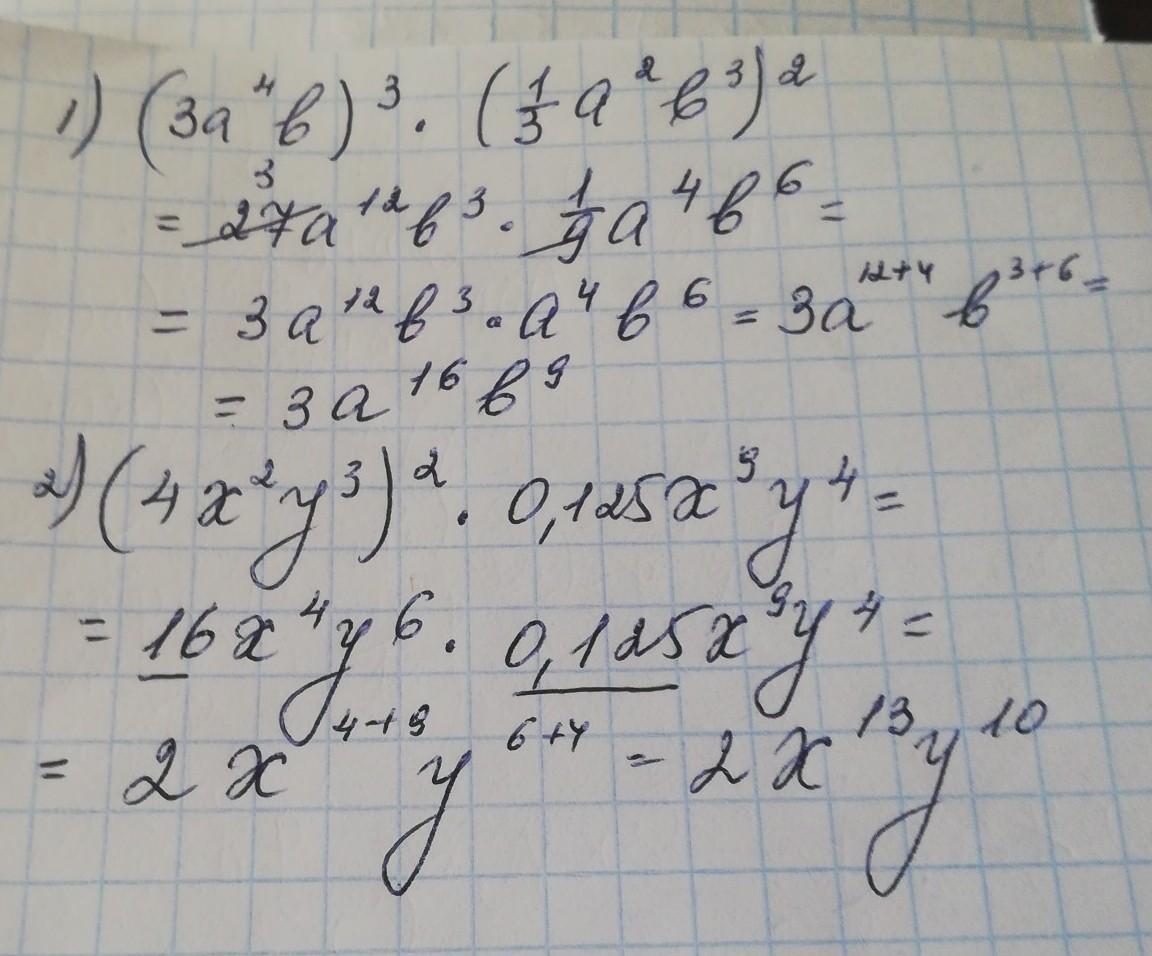 1) (3a⁴b)³ · (1/3 a²b³)²
= 27 3 a¹²b³ · 1/9 a⁴b⁶ =
= 3a¹²b³ · a⁴b⁶ = 3a¹²⁺⁴ b³⁺⁶ =
= 3a¹⁶b⁹
2) (4x²y³)² · 0,125x⁹y⁴ =
= 16x⁴y⁶ · 0,125x⁹y⁴ =
= 2x⁴⁺⁹y⁶⁺⁴ = 2x¹³y¹⁰